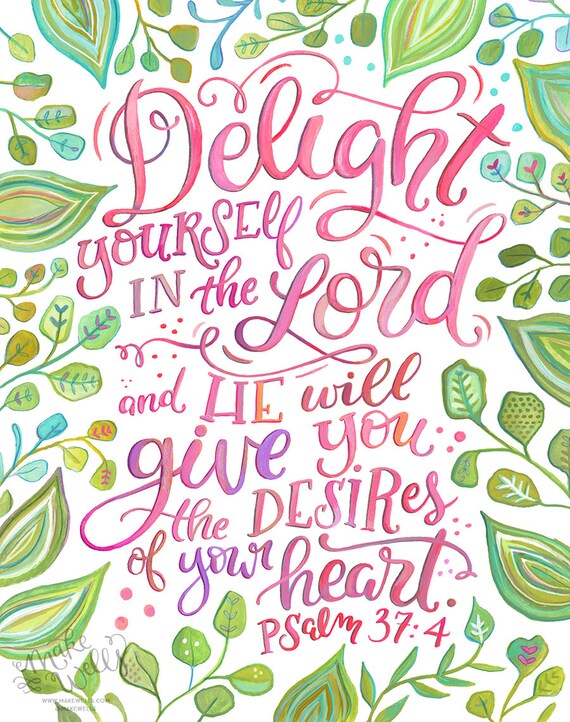 Delight
YOURSElf
IN the Lord
and HE will
give you
the DESIRes
of your heart.
PSalm 37:4
Make
Wells
WWW.MAKEWELLS.COM
@MAKEWELLS